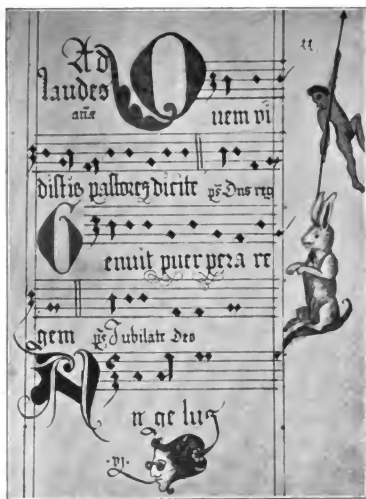 Ad
laudes
Quem vi
distis pastores dicite ps̄ Dns reg
Genuit puerpera re
gem ps̄ Jubilate deo
An ge lus
·vj·